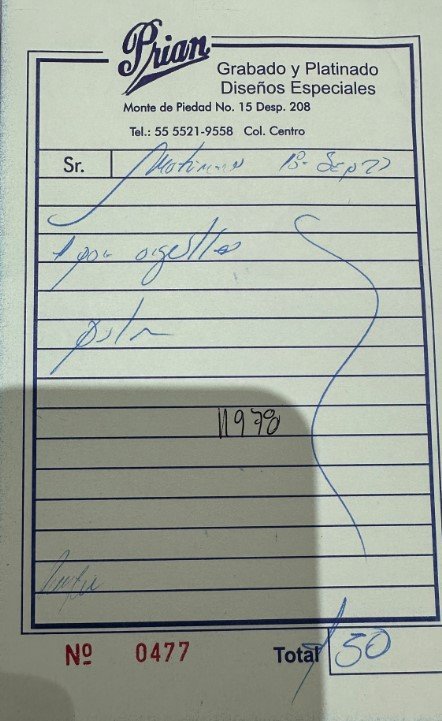 Prian
Grabado y Platinado
Diseños Especiales
Monte de Piedad No. 15 Desp. 208
Tel.: 55 5521-9558 Col. Centro
Sr.
1 par
11978
Nº 0477
Total 50